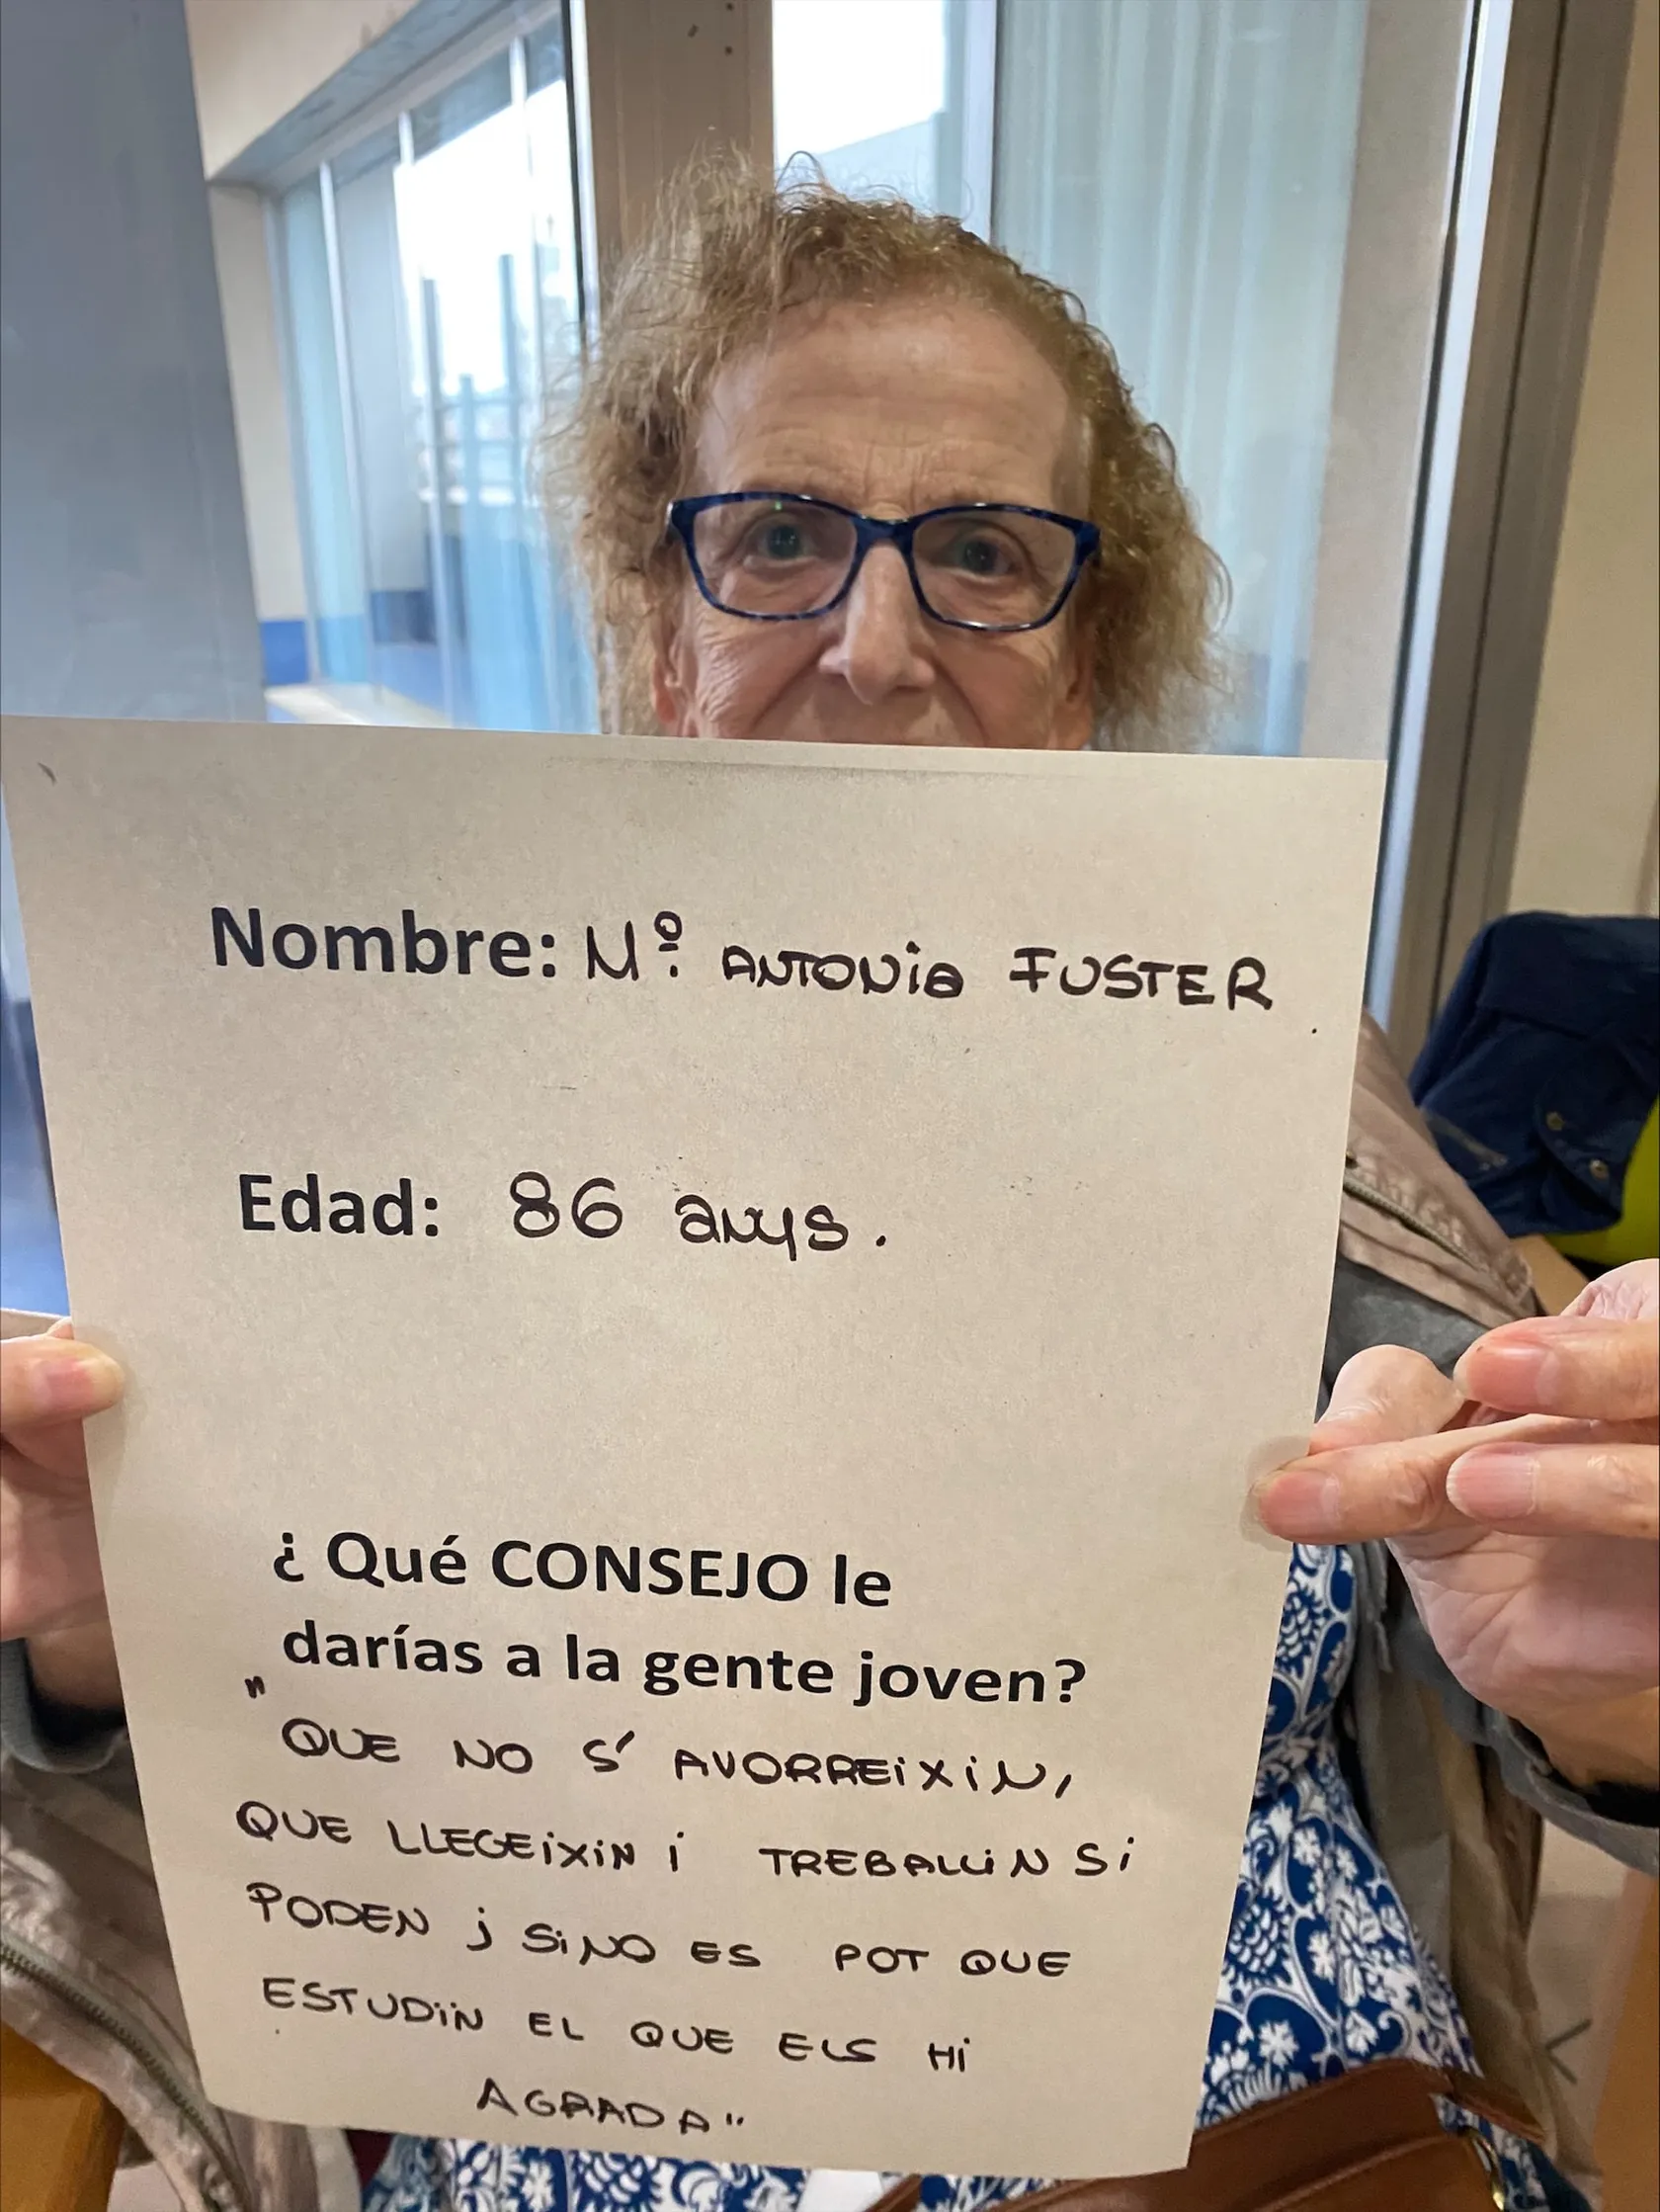 Nombre: Mº ANTONiA FUSTER.
Edad: 86 anys.
¿ Qué CONSEJO le
darías a la gente joven?
" QUE NO S' AVORREiXiN,
QUE LLEGEiXiN i TREBALLiN Si
PODEN j SiNO ES POT QUE
ESTUDiïN EL QUE ELS Hi
AGRADA"